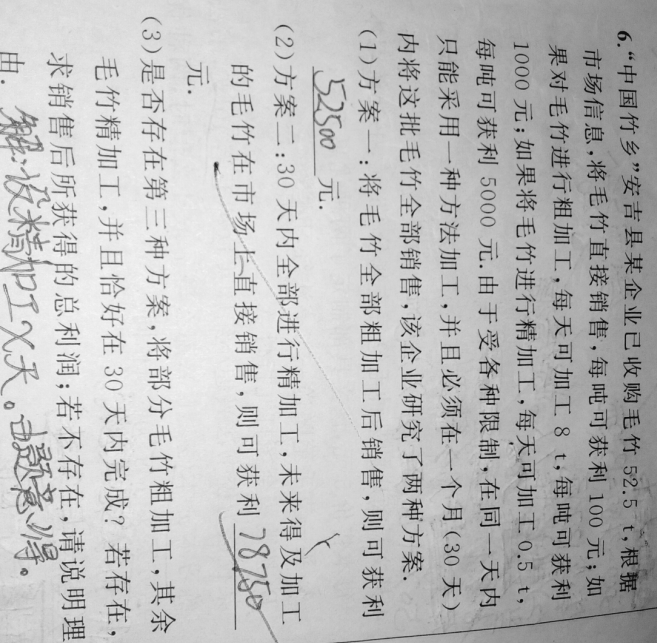 6.“中国竹乡”安吉县某企业已收购毛竹 52.5 t,根据
市场信息,将毛竹直接销售,每吨可获利 100 元;如
果对毛竹进行粗加工,每天可加工 8 t,每吨可获利
1000 元;如果将毛竹进行精加工,每天可加工 0.5 t,
每吨可获利 5000 元.由于受各种限制,在同一天内
只能采用一种方法加工,并且必须在一个月(30 天)
内将这批毛竹全部销售,该企业研究了两种方案.
(1)方案一:将毛竹全部粗加工后销售,则可获利
52500 元.
(2)方案二:30 天内全部进行精加工,未来得及加工
的毛竹在市场上直接销售,则可获利 78750
元.
(3)是否存在第三种方案,将部分毛竹粗加工,其余
毛竹精加工,并且恰好在 30 天内完成?若存在,
求销售后所获得的总利润;若不存在,请说明理
由. 解:设精加工x天。由题意得。